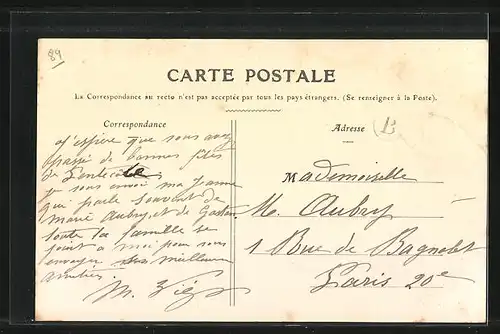 89
CARTE POSTALE
La Correspondance au recto n'est pas acceptée par tous les pays étrangers. (Se renseigner à la Poste).
Correspondance
Adresse
B
j'espère que vous avez
passé de bonnes fêtes
de Pentecôte
je vous envoi ma Jeanne
qui parle souvent de
Marie Aubry, et de Gaston
toute la famille se
joint a moi pour vous
envoyer ses meilleures
amitiés.
M.
Mademoiselle
M. Aubry
1 Rue de Bagnolet
Paris 20e